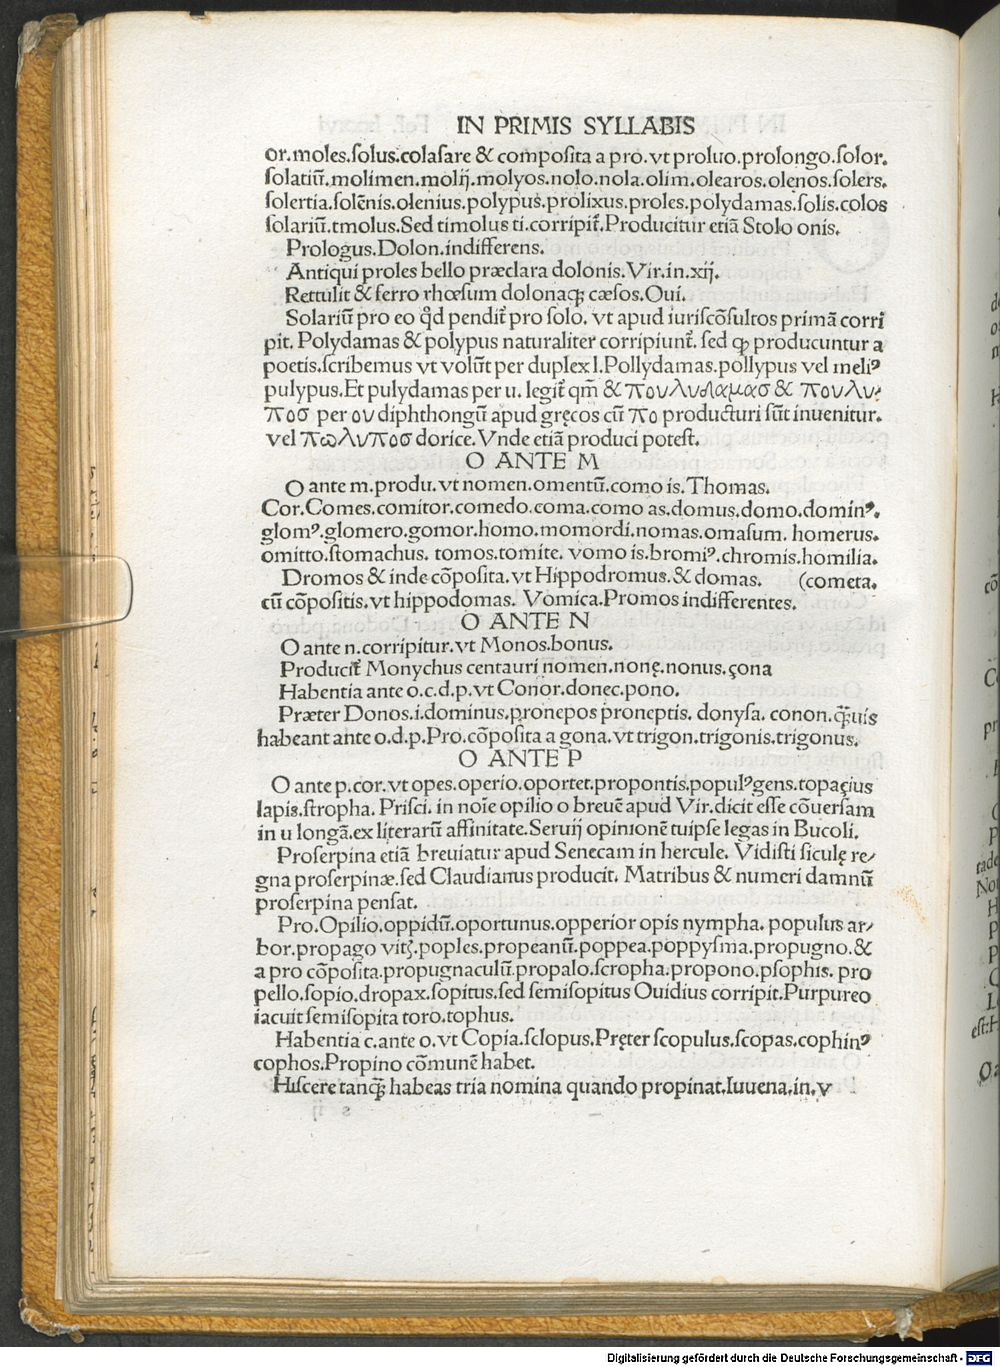 IN PRIMIS SYLLABIS
or.moles.solus.colasare & composita a pro.vt proluo.prolongo.solor.
solatiū.molimen.molij.molyos.nolo.nola.olim.olearos.olenos.solers.
solertia.solēnis.olenius.polypus.prolixus.proles.polydamas.solis.colos
solariū.tmolus.Sed timolus ti.corripit̄.Producitur etiā Stolo onis.
Prologus.Dolon.indifferens.
Antiqui proles bello præclara dolonis.Vir.in.xij.
Rettulit & ferro rhœsum dolonaqꝫ cæsos.Oui.
Solariū pro eo qd̄ pendit̄ pro solo. vt apud iuriscōsultos primā corri
pit. Polydamas & polypus naturaliter corripiunt̄. sed ꝙ producuntur a
poetis.scribemus vt volūt per duplex l.Pollydamas.pollypus vel meliꝰ
pulypus.Et pulydamas per u. legit̄ qm̄ & πουλυδαμασ & πουλυ⸗
ποσ per ου diphthongū apud gręcos cū πο producturi sūt inuenitur.
vel πωλυποσ dorice.Vnde etiā produci potest.
O ANTE M
O ante m.produ.vt nomen.omentū.como is.Thomas.
Cor.Comes.comitor.comedo.coma.como as.domus.domo.dominꝰ.
glomꝰ.glomero.gomor.homo.momordi.nomas.omasum. homerus.
omitto.stomachus. tomos.tomite. vomo is.bromiꝰ.chromis.homilia.
Dromos & inde cōposita.vt Hippodromus.& domas. (cometa.
cū cōpositis.vt hippodomas. Vomica.Promos indifferentes.
O ANTE N
O ante n.corripitur.vt Monos.bonus.
Producit̄ Monychus centauri nomen.nonę.nonus.çona
Habentia ante o.c.d.p.vt Conor.donec.pono.
Præter Donos.i.dominus.pronepos proneptis. donysa. conon.qꝫ̄uis
habeant ante o.d.p.Pro.cōposita a gona.vt trigon.trigonis.trigonus.
O ANTE P
O ante p.cor.vt opes.operio.oportet.propontis.populꝰgens.topaçius
lapis.stropha. Prisci. in noīe opilio o breuē apud Vir.dicit esse cōuersam
in u longā.ex literarū affinitate.Seruij opinionē tuipse legas in Bucoli.
Proserpina etiā breuiatur apud Senecam in hercule. Vidisti siculę re⸗
gna proserpinæ.sed Claudianus producit. Matribus & numeri damnū
proserpina pensat.
Pro.Opilio.oppidū.oportunus.opperior opis nympha. populus ar⸗
bor.propago vitꝭ.poples.propeanū.poppea.poppysma.propugno.&
a pro cōposita.propugnaculū.propalo.scropha.propono.psophis. pro
pello.sopio.dropax.sopitus.sed semisopitus Ouidius corripit.Purpureo
iacuit semisopita toro.tophus.
Habentia c.ante o.vt Copia.sclopus.Pręter scopulus.scopas.cophinꝰ
cophos.Propino cōmunē habet.
Hiscere tanqꝫ̄ habeas tria nomina quando propinat.Iuuena.in.v
Digitalisierung gefördert durch die Deutsche Forschungsgemeinschaft - DFG